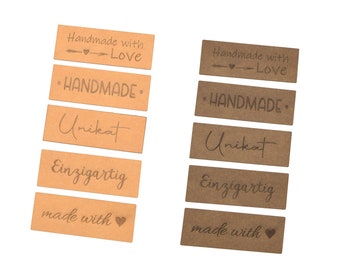 Handmade with
Love
HANDMADE
Unikat
Einzigartig
made with ♥
Handmade with
Love
HANDMADE
Unikat
Einzigartig
made with ♥